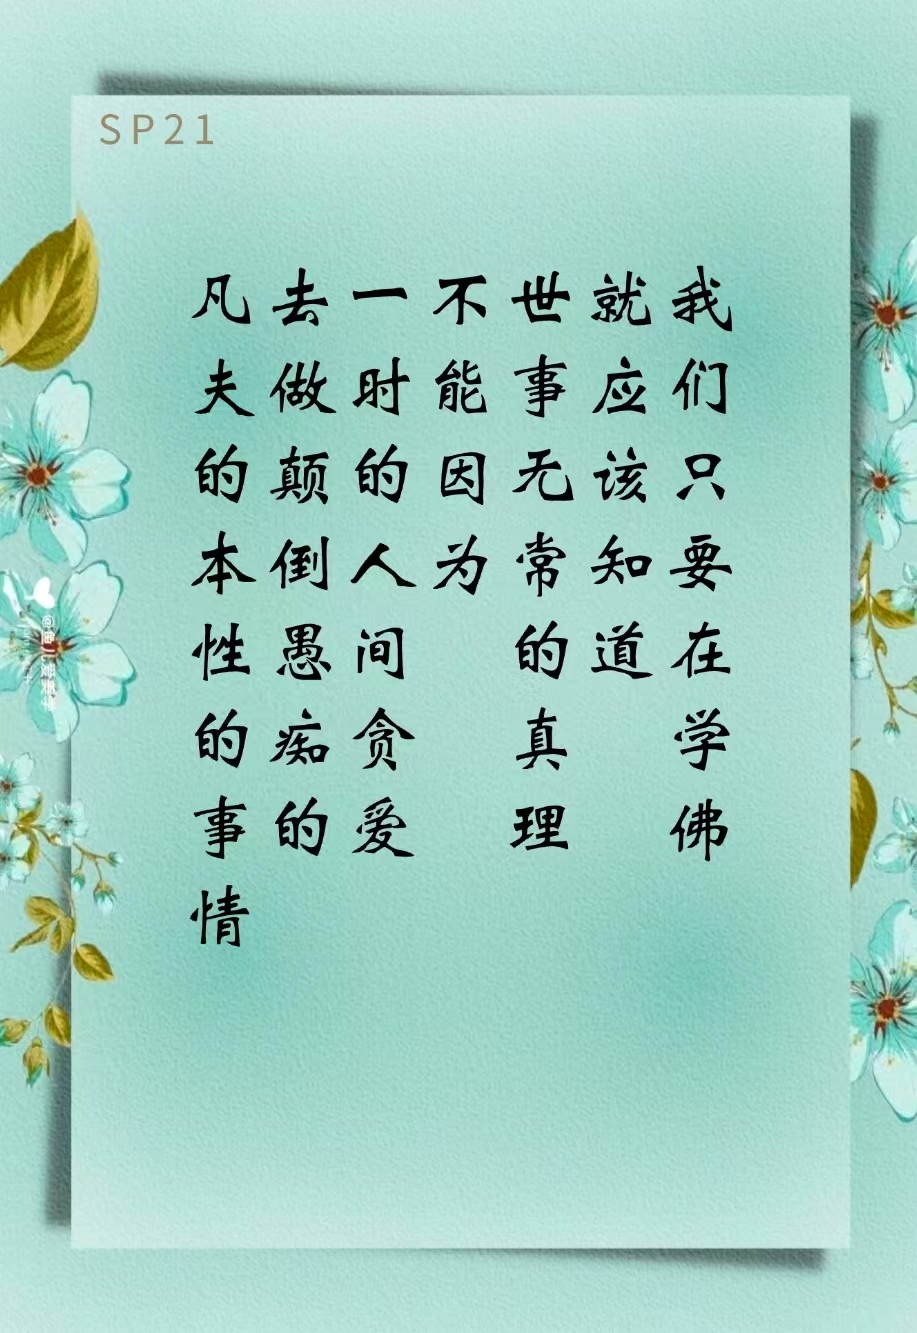 SP21
我们只要在学佛
就应该知道
世事无常的真理
不能因为
一时的人间贪爱
去做颠倒愚痴的
凡夫的本性的事情